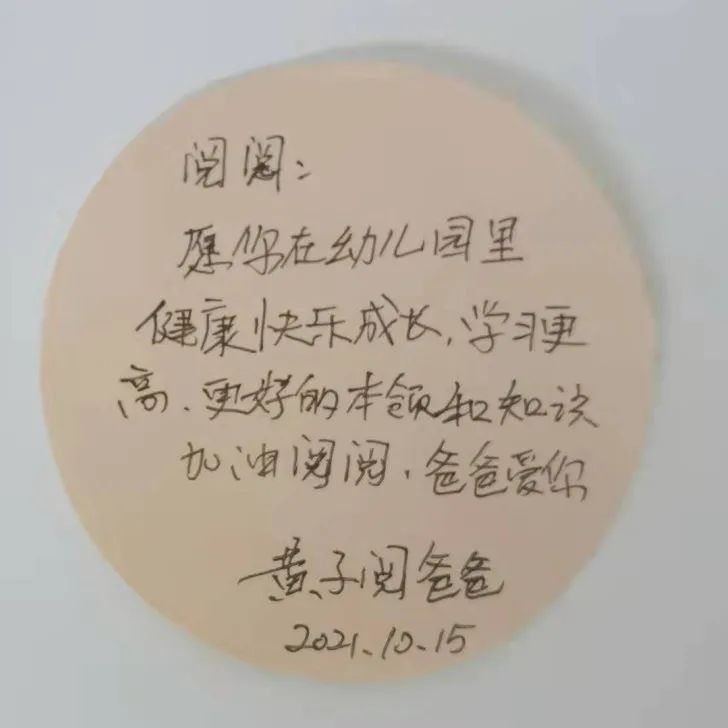 阅阅：
愿你在幼儿园里
健康快乐成长，学习更
高、更好的本领和知识
加油阅阅，爸爸爱你
黄子阅爸爸
2021.10.15